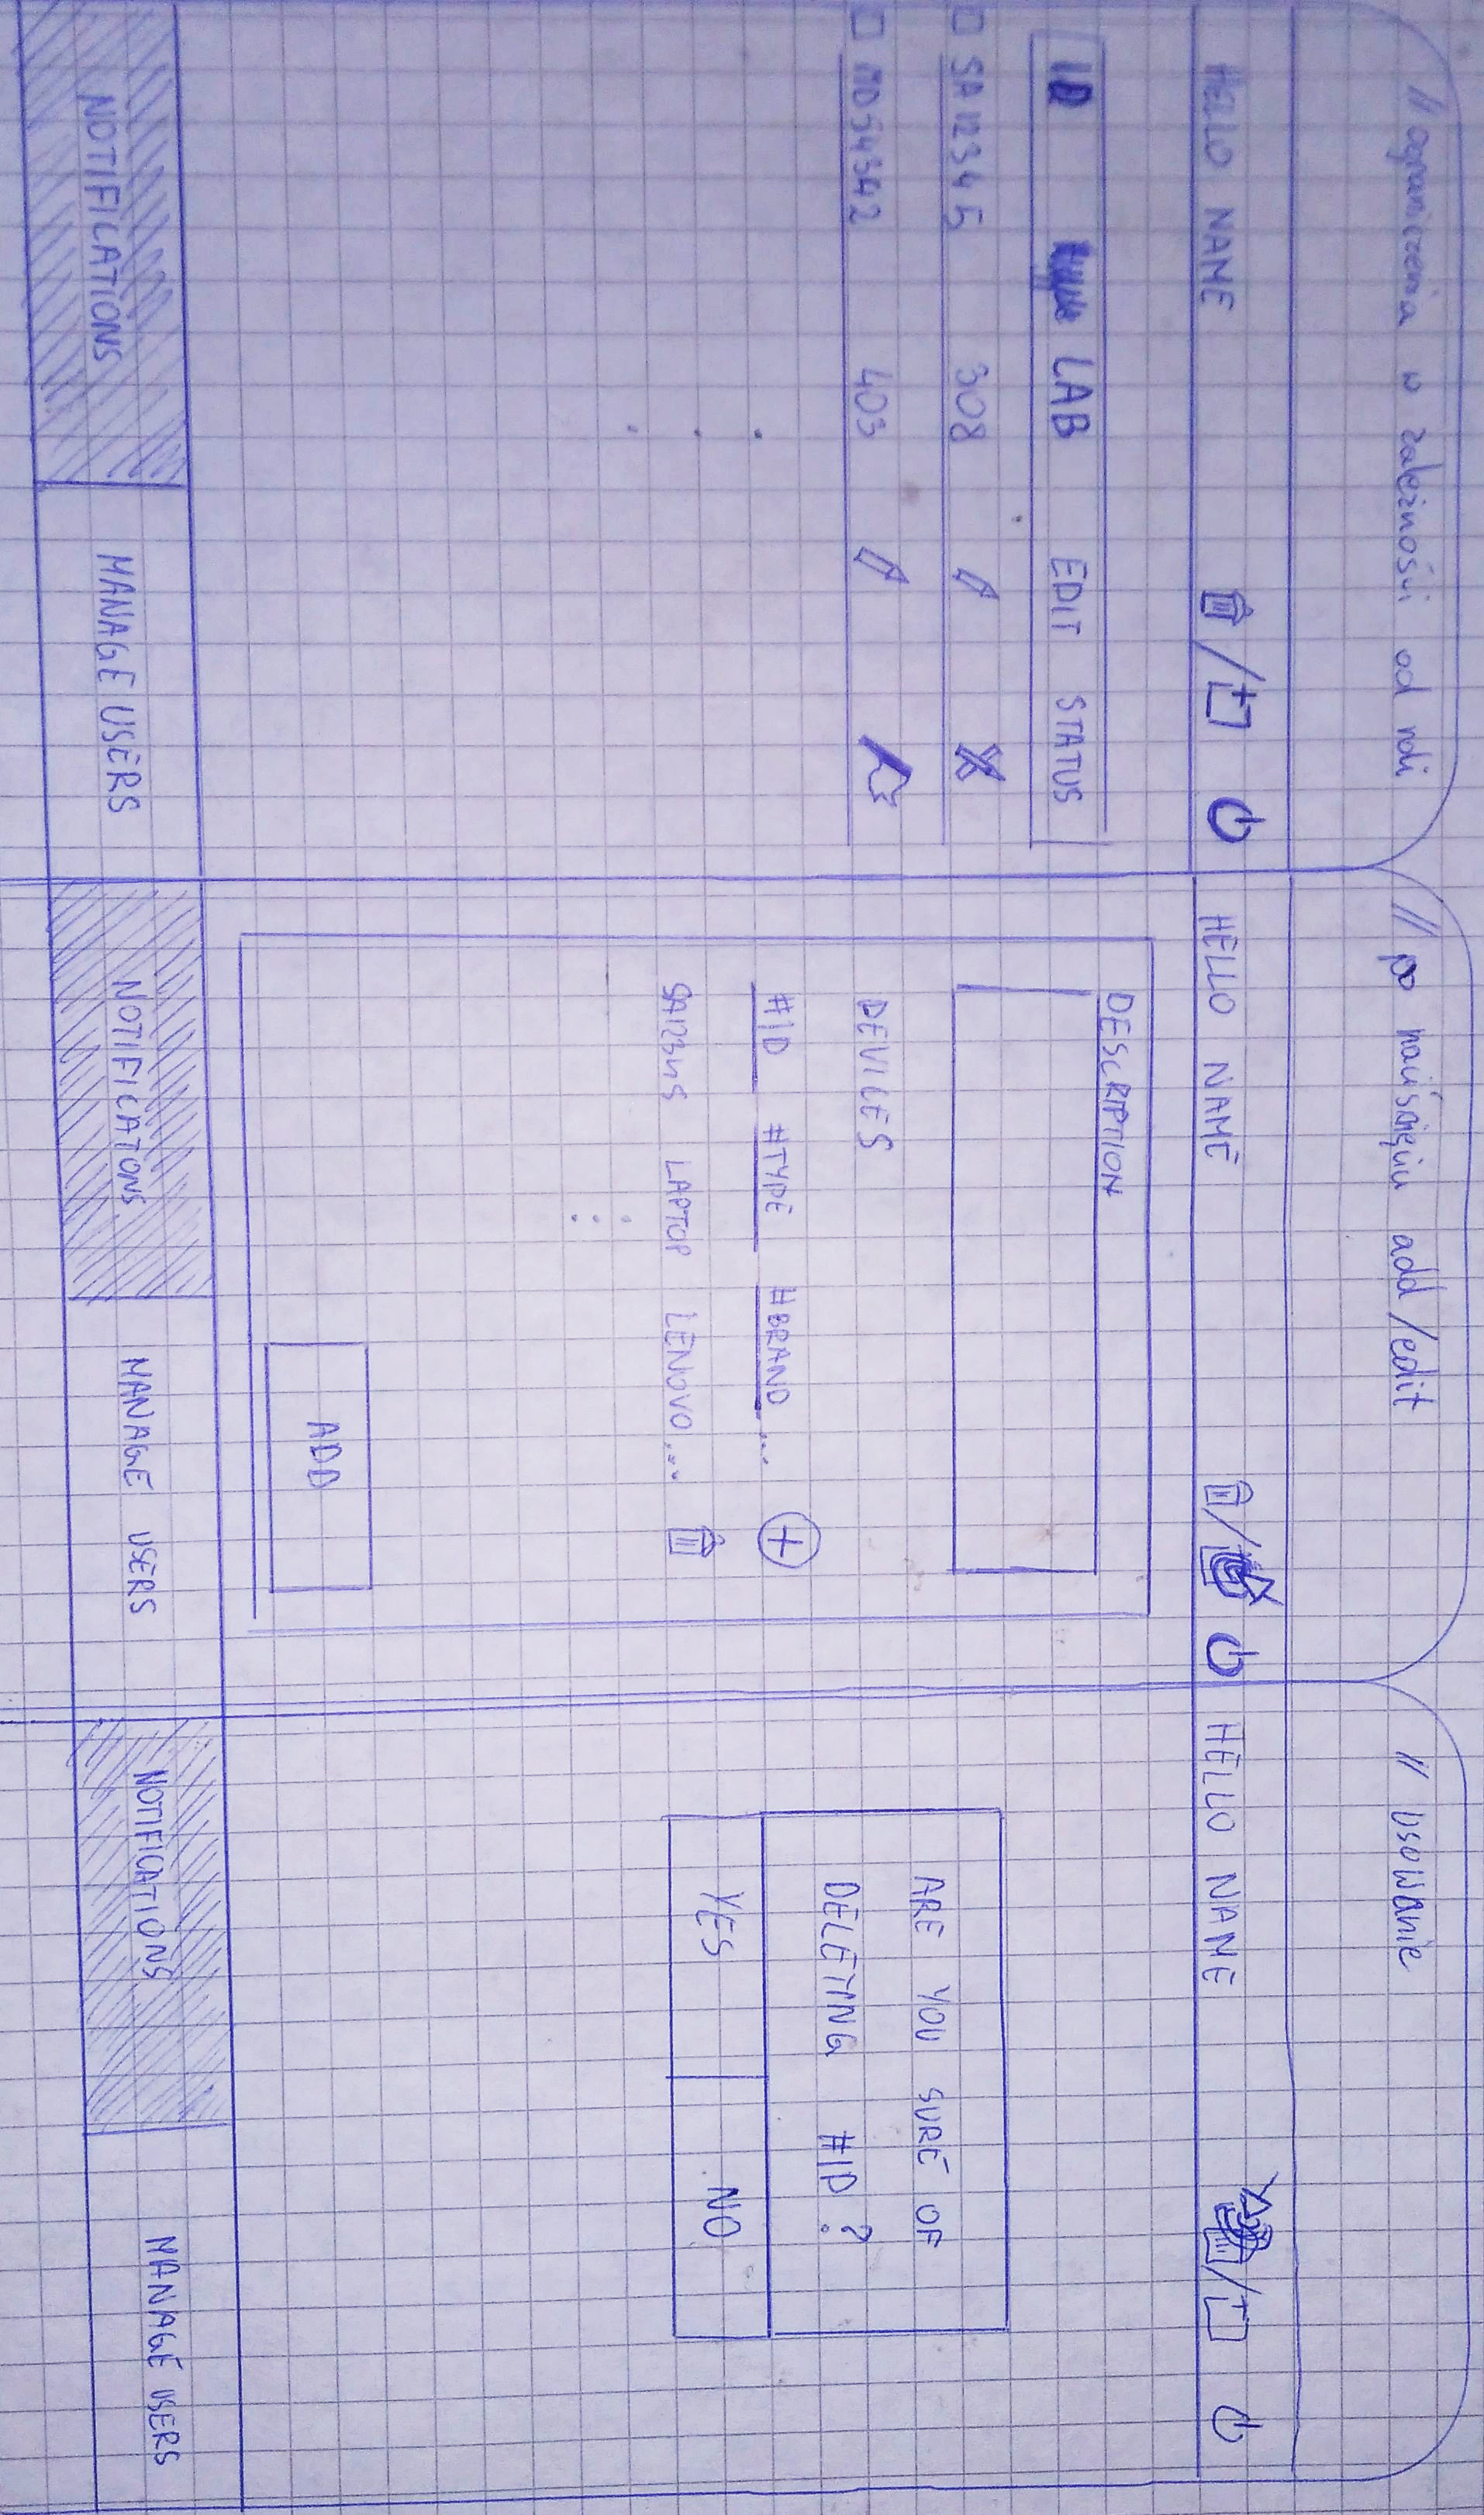 // ograniczenia w zależnośći od roli
HELLO NAME /
ID LAB EDIT STATUS
SA12345 308
403
NOTIFICATIONS MANAGE USERS
// po naciśnięciu add/edit
HELLO NAME /
DESCRIPTION
DEVICES
#ID #TYPE #BRAND ...
SA12345 LAPTOP LENOVO ...
ADD
NOTIFICATONS MANAGE USERS
// Usowanie
HELLO NAME /
ARE YOU SURE OF
DELETING #ID ?
YES NO
NOTIFICATIONS MANAGE USERS